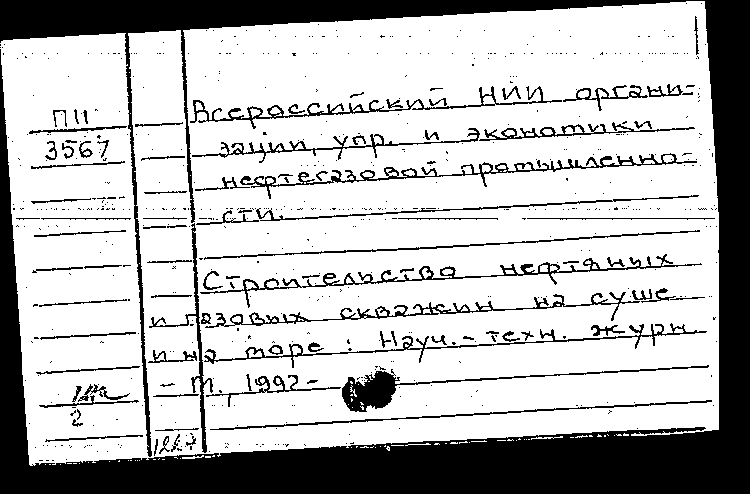 П11
3567
Всероссийский НИИ органи-
зации, упр. и экономики
нефтегазовой промышленно-
сти.
Строительство нефтяных
и газовых скважин на суше
и на море : Науч.-техн. журн.
- М., 1992-
2